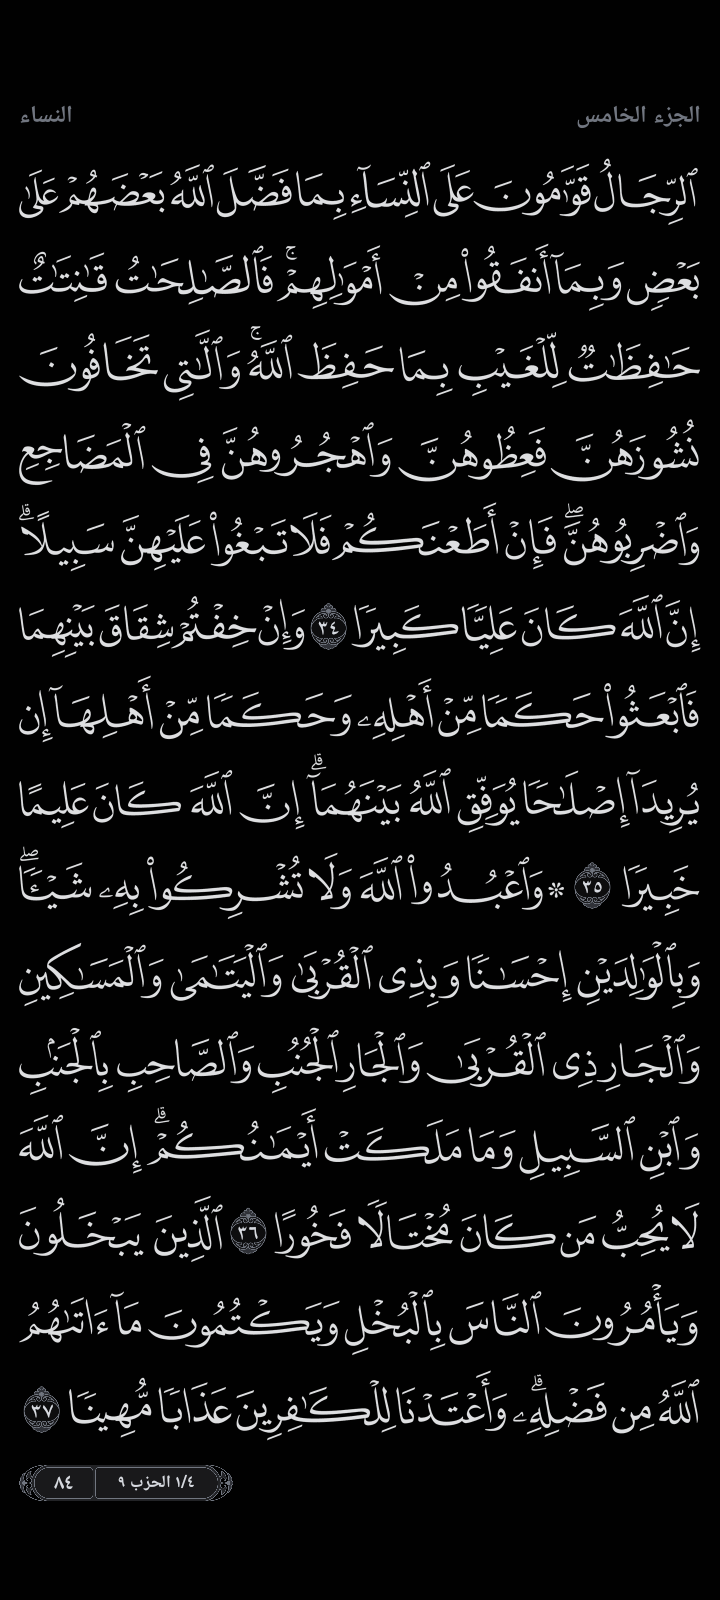 الجزء الخامس
النساء
ٱلرِّجَالُ قَوَّٰمُونَ عَلَى ٱلنِّسَآءِ بِمَا فَضَّلَ ٱللَّهُ بَعْضَهُمْ عَلَىٰ
بَعْضٍ وَبِمَآ أَنفَقُوا۟ مِنْ أَمْوَٰلِهِمْ ۚ فَٱلصَّٰلِحَٰتُ قَٰنِتَٰتٌ
حَٰفِظَٰتٌ لِّلْغَيْبِ بِمَا حَفِظَ ٱللَّهُ ۚ وَٱلَّٰتِى تَخَافُونَ
نُشُوزَهُنَّ فَعِظُوهُنَّ وَٱهْجُرُوهُنَّ فِى ٱلْمَضَاجِعِ
وَٱضْرِبُوهُنَّ ۖ فَإِنْ أَطَعْنَكُمْ فَلَا تَبْغُوا۟ عَلَيْهِنَّ سَبِيلًا ۗ
إِنَّ ٱللَّهَ كَانَ عَلِيًّا كَبِيرًا ٣٤ وَإِنْ خِفْتُمْ شِقَاقَ بَيْنِهِمَا
فَٱبْعَثُوا۟ حَكَمًا مِّنْ أَهْلِهِۦ وَحَكَمًا مِّنْ أَهْلِهَآ إِن
يُرِيدَآ إِصْلَٰحًا يُوَفِّقِ ٱللَّهُ بَيْنَهُمَآ ۗ إِنَّ ٱللَّهَ كَانَ عَلِيمًا
خَبِيرًا ٣٥ * وَٱعْبُدُوا۟ ٱللَّهَ وَلَا تُشْرِكُوا۟ بِهِۦ شَيْـًٔا ۖ
وَبِٱلْوَٰلِدَيْنِ إِحْسَٰنًا وَبِذِى ٱلْقُرْبَىٰ وَٱلْيَتَٰمَىٰ وَٱلْمَسَٰكِينِ
وَٱلْجَارِ ذِى ٱلْقُرْبَىٰ وَٱلْجَارِ ٱلْجُنُبِ وَٱلصَّاحِبِ بِٱلْجَنۢبِ
وَٱبْنِ ٱلسَّبِيلِ وَمَا مَلَكَتْ أَيْمَٰنُكُمْ ۗ إِنَّ ٱللَّهَ
لَا يُحِبُّ مَن كَانَ مُخْتَالًا فَخُورًا ٣٦ ٱلَّذِينَ يَبْخَلُونَ
وَيَأْمُرُونَ ٱلنَّاسَ بِٱلْبُخْلِ وَيَكْتُمُونَ مَآ ءَاتَىٰهُمُ
ٱللَّهُ مِن فَضْلِهِۦ ۗ وَأَعْتَدْنَا لِلْكَٰفِرِينَ عَذَابًا مُّهِينًا ٣٧
١/٤ الحزب ٩
٨٤